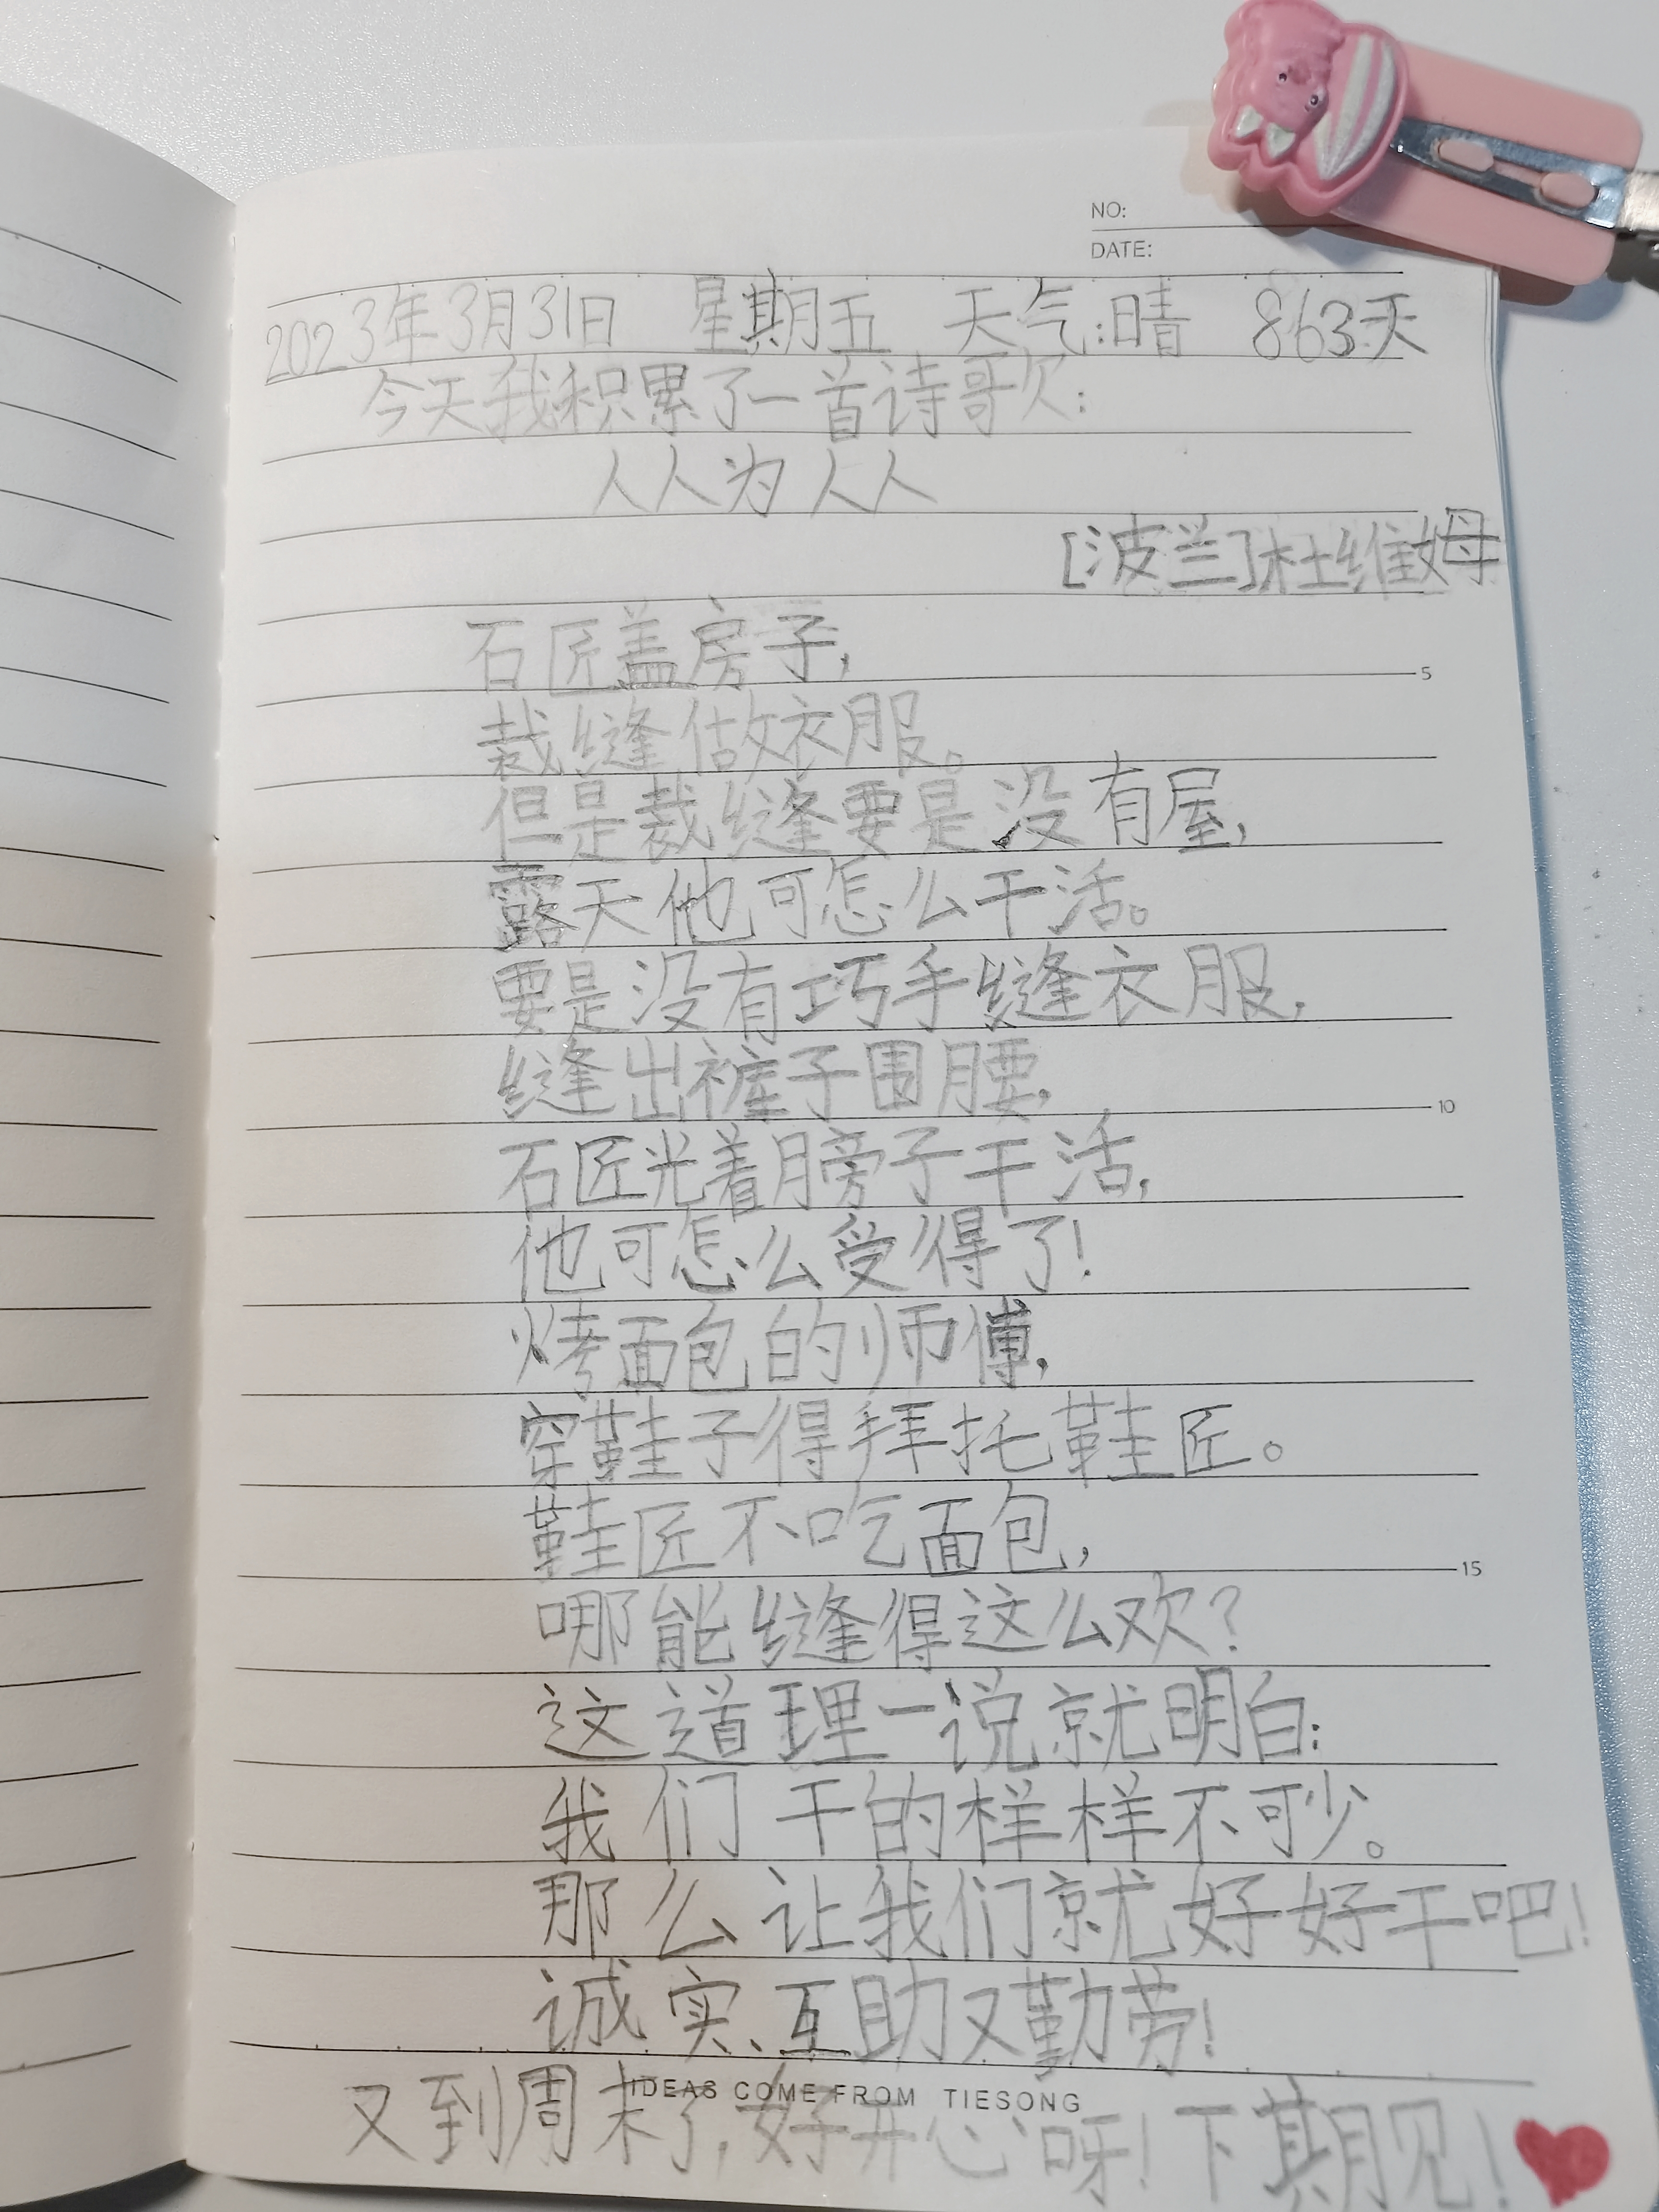 NO:
DATE:
2023年3月31日 星期五 天气:晴 863天
今天我积累了一首诗歌:
人人为人人
[波兰]杜维姆
石匠盖房子,
5
裁缝做衣服。
但是裁缝要是没有屋,
露天他可怎么干活。
要是没有巧手缝衣服,
缝出裤子围腰,
10
石匠光着膀子干活,
他可怎么受得了!
烤面包的师傅,
穿鞋子得拜托鞋匠。
鞋匠不吃面包,
15
哪能缝得这么欢?
这道理一说就明白:
我们干的样样不可少。
那么让我们就好好干吧!
诚实、互助又勤劳!
IDEAS COME FROM TIESONG
又到周末了,好开心呀!下期见!